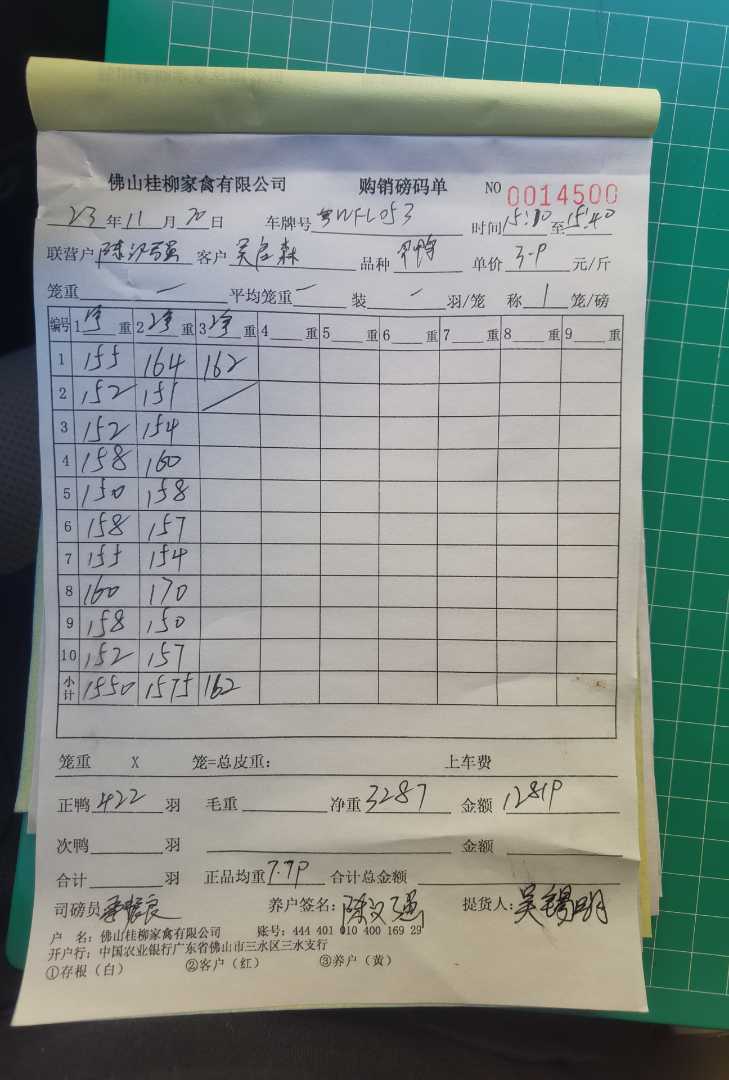 佛山桂柳家禽有限公司 购销磅码单 NO 0014500
23年11月20日 车牌号粤WFL053 时间15:10至15:40
联营户陈汉强 客户 品种 单价3.9元/斤
笼重一 平均笼重一 装一羽/笼 称1笼/磅
编号 1净重 2净重 3净重 4重 5重 6重 7重 8重 9重
1 155 164 162
2 152 151 /
3 152 154
4 158 160
5 150 158
6 158 157
7 155 154
8 160 170
9 158 150
10 152 157
小计 1550 1575 162
笼重 X 笼=总皮重: 上车费
正鸭422羽 毛重 净重3287 金额12819
次鸭 羽 金额
合计 羽 正品均重7.79 合计总金额
司磅员 养户签名: 提货人:吴锡明
户 名:佛山桂柳家禽有限公司 账号:444 401 010 400 169 29
开户行:中国农业银行广东省佛山市三水区三水支行
①存根(白) ②客户(红) ③养户(黄)